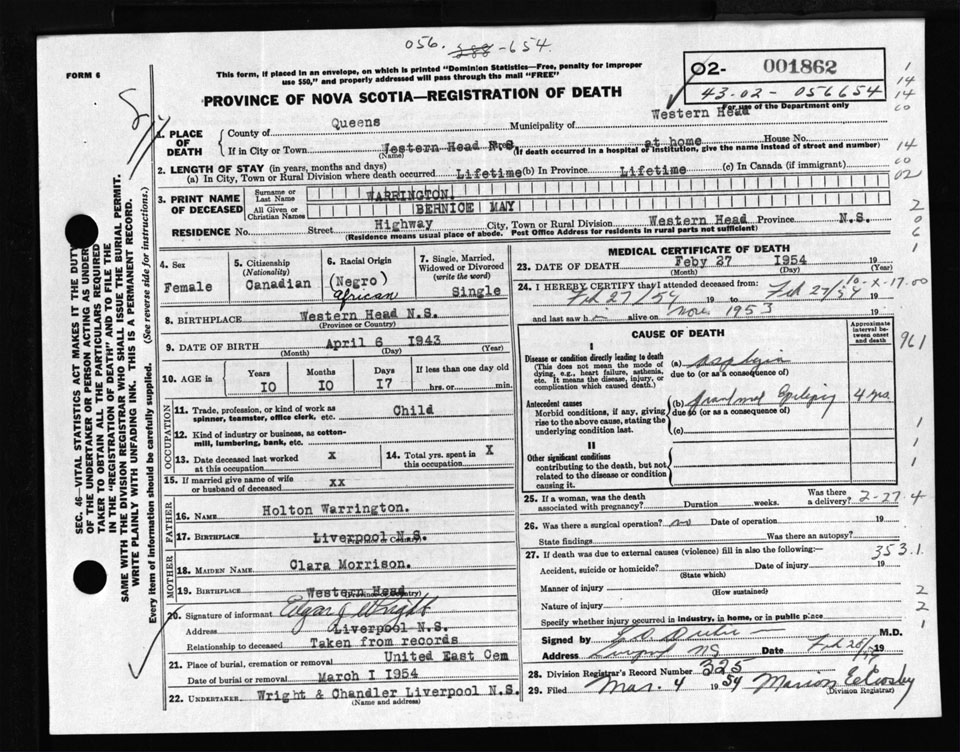 056. 288 -654.
FORM 6
This form, if placed in an envelope, on which is printed "Dominion Statistics—Free, penalty for improper
use $50," and properly addressed will pass through the mail "FREE"
O2- 001862
43-02- 056654
For use of the Department only
PROVINCE OF NOVA SCOTIA—REGISTRATION OF DEATH
1. PLACE OF DEATH
County of Queens Municipality of Western Head
If in City or Town Western Head N.S. at home House No.
(Name) (If death occurred in a hospital or institution, give the name instead of street and number)
2. LENGTH OF STAY (in years, months and days)
(a) In City, Town or Rural Division where death occurred Lifetime (b) In Province Lifetime (c) In Canada (if immigrant)
3. PRINT NAME OF DECEASED
Surname or Last Name WARRINGTON
All Given or Christian Names BERNICE MAY
RESIDENCE No. Street Highway City, Town or Rural Division Western Head Province N.S.
(Residence means usual place of abode. Post Office Address for residents in rural parts not sufficient)
4. Sex Female
5. Citizenship (Nationality) Canadian
6. Racial Origin (Negro) African
7. Single, Married, Widowed or Divorced (write the word) Single
8. BIRTHPLACE Western Head N.S.
(Province or Country)
9. DATE OF BIRTH April 6 1943
(Month) (Day) (Year)
10. AGE in Years 10 Months 10 Days I7 If less than one day old hrs. or min.
OCCUPATION
11. Trade, profession, or kind of work as spinner, teamster, office clerk, etc. Child
12. Kind of industry or business, as cotton-mill, lumbering, bank, etc.
13. Date deceased last worked at this occupation X
14. Total yrs. spent in this occupation X
15. If married give name of wife or husband of deceased xx
FATHER
16. NAME Holton Warrington.
17. BIRTHPLACE Liverpool N.S.
(Province or Country)
MOTHER
18. MAIDEN NAME Clara Morrison.
19. BIRTHPLACE Western Head
(Province or Country)
20. Signature of informant Edgar J Wright
Address Liverpool N.S.
Relationship to deceased Taken from records
21. Place of burial, cremation or removal United East Cem
Date of burial or removal March I I954
22. UNDERTAKER Wright & Chandler Liverpool N.S.
(Name and address)
MEDICAL CERTIFICATE OF DEATH
23. DATE OF DEATH Feby 27 I954 19
(Month) (Day) (Year)
24. I HEREBY CERTIFY that I attended deceased from:
Feb 27/54 19 to Feb 27/54 19
and last saw h alive on Nov. 1953
10-X-17.00
CAUSE OF DEATH
Approximate interval between onset and death
I
Disease or condition directly leading to death
(This does not mean the mode of dying, e.g., heart failure, asthenia, etc. It means the disease, injury, or complication which caused death.)
(a)
due to (or as a consequence of)
Antecedent causes
Morbid conditions, if any, giving rise to the above cause, stating the underlying condition last.
(b) Grand mal Epilepsy 4 yrs
due to (or as a consequence of)
(c)
II
Other significant conditions
contributing to the death, but not related to the disease or condition causing it.
25. If a woman, was the death associated with pregnancy? Duration weeks. Was there a delivery? 2-27.4
26. Was there a surgical operation? no Date of operation 19
State findings Was there an autopsy?
27. If death was due to external causes (violence) fill in also the following:— 353.1
Accident, suicide or homicide? Date of injury 19
(State which)
Manner of injury
(How sustained)
Nature of injury
Specify whether injury occurred in industry, in home, or in public place
Signed by M.D.
Address Liverpool NS Date Feb 19
28. Division Registrar's Record Number 325
29. Filed Mar. 4 19 54 Marion E Crosby
(Division Registrar)
SEC. 46—VITAL STATISTICS ACT MAKES IT THE DUTY
OF THE UNDERTAKER OR PERSON ACTING AS UNDER-
TAKER TO OBTAIN ALL THE PARTICULARS REQUIRED
IN THE "REGISTRATION OF DEATH" AND TO FILE THE
SAME WITH THE DIVISION REGISTRAR WHO SHALL ISSUE THE BURIAL PERMIT.
WRITE PLAINLY WITH UNFADING INK. THIS IS A PERMANENT RECORD.
Every item of information should be carefully supplied. (See reverse side for instructions.)
1
14
14
00
14
00
02
2
0
6
1
961
1
1
1
2
2
1